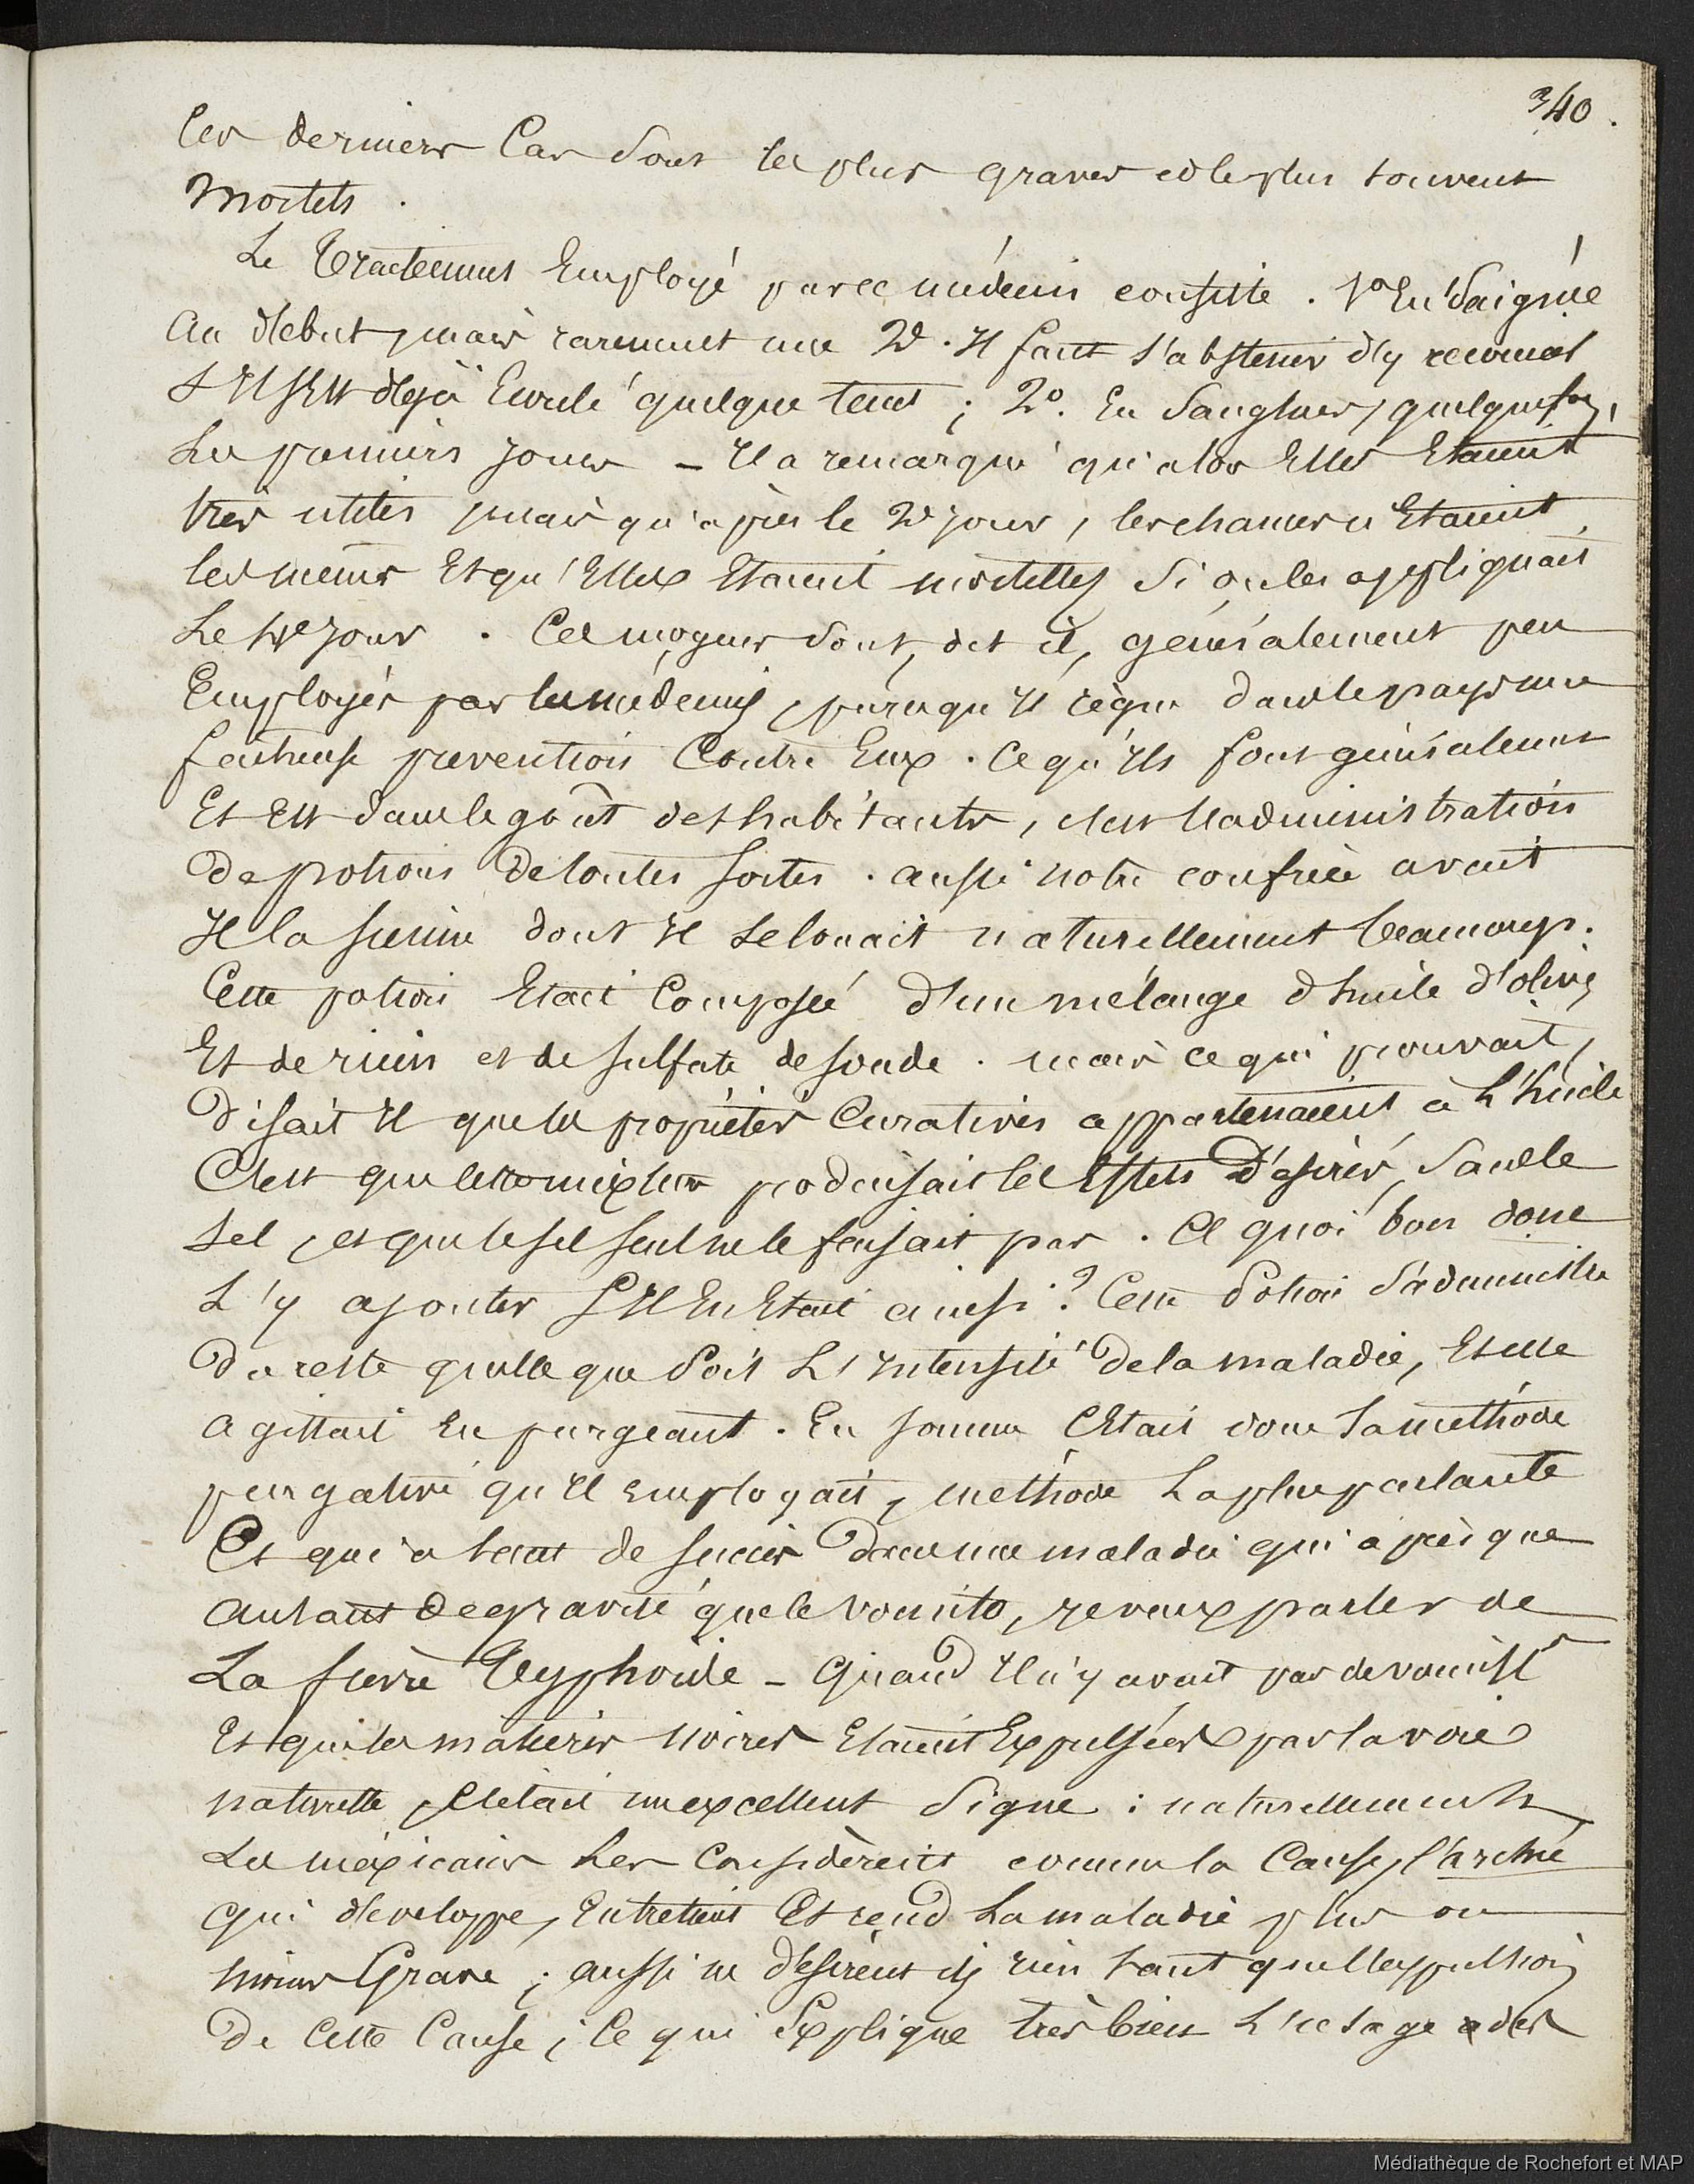 340.
Ces derniers Cas Sont les plus graves et le plus souvent
Mortels.
Le Traitement Employé par ce médecin consiste. 1° En Saignée
Au début, mais rarement une 2e. Il faut s'abstenir d'y recourir
S'Il s'Est déjà Ecoulé quelque tems; 2°. En Sangsues, quelquefois,
Les premiers Jours – Il a remarqué qu'alors Elles Etaient
très utiles, mais qu'après le 2e jour, les chances n'Etaient
les mêmes Et qu'Elles Etaient mortelles Si on les appliquait
Le 4e Jour. Ces moyens Sont, dit il, généralement peu
Employés par les médecins, parcequ'Il règne dans le pays une
facheuse prevention Contre Eux. Ce qu'Ils font généralement
Et Est dans le goût des habitants, c'est l'administration
De potions De toutes Sortes. aussi notre confrère avait
Il la sienne dont Il se louait naturellement beaucoup.
Cette potion Etait Composée d'un mélange d'huile d'olives
Et de ricin et de sulfate de soude. mais ce qui prouvait,
Disait Il que les propriétés Curatives appartenaient à L'huile
C'Est que cette mixture produisait les Effets Désirés, Sans le
Sel, et que le sel seul ne le faisait pas. A quoi bon donc
L'y ajouter S'Il En Etait ainsi? Cette Potion S'administre
Du reste quelle que Soit L'Intensité De la maladie, Et elle
agissait En purgeant. En somme C'Etait donc la méthode
purgative qu'Il employait, méthode La plus parlante
Et qui a tant de succès Dans une maladie qui a presque
Autant De gravité que le vomito, je veux parler de
La fièvre Typhoïde – Quand Il n'y avait pas de vomissts
Et que les matières Noires Etaient Expulsées par la voie
naturelle, C'était un excellent Signe: naturellement
Les méxicains Les Considèrent comme la Cause, l'archée
qui développe, Entretient Et rend La maladie plus ou
moins Grave; aussi ne Désirent ils rien tant que l'expulsion
De Cette Cause; Ce qui Explique très bien L'usage des
Médiathèque de Rochefort et MAP